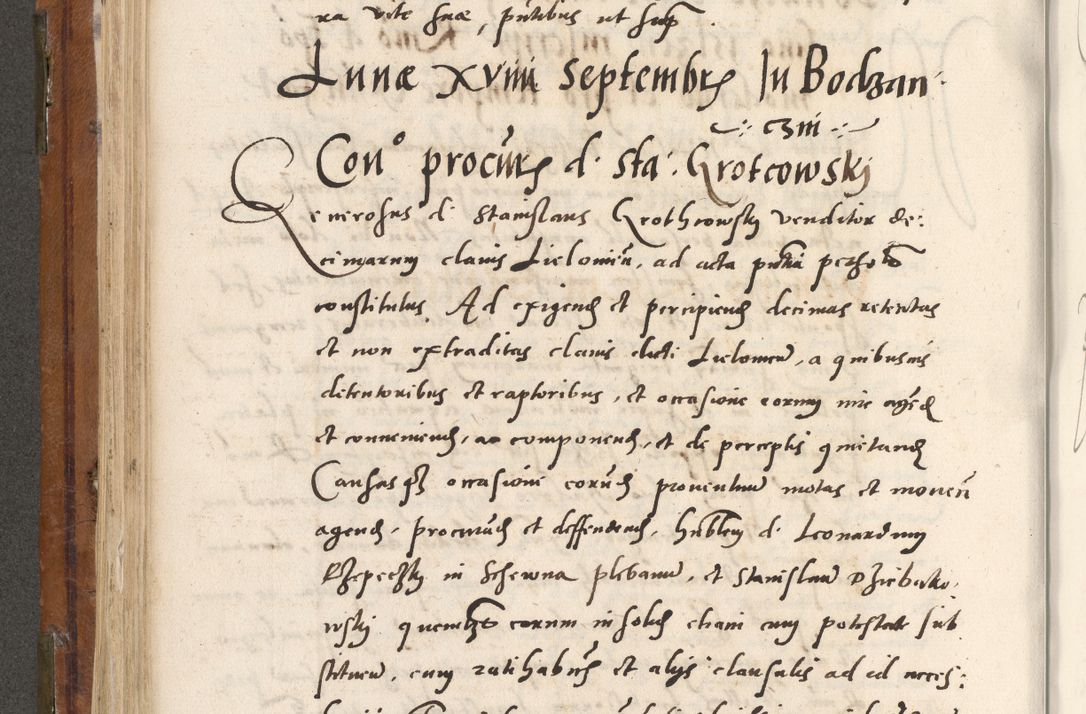 ra vite suæ, pntibus ut sup
Lunæ XVIII Septembrs In Bodzan
czin
Cono procurs d. Sta. Grotcowskj
Generosus d. Stanislaus Grothcowskj venditor de:
cimarum clavis Lielonien, ad acta pntia personlr
constitutus. Ad exigend et percipiend decimas retentas
et non extraditas clavis dicti Lielonien, a quibusvis
detentoribus et raptoribus, et occasione eorum iure agend
et conveniend, ac componend, et de perceptis quietand
Causas qz occasione eorund proventuum motas et moven
agend, procurand et deffendend, Hnblem d. Leonardum
Rzepeczkj in Schewna plebanum, et Stanislaum Dziebako
wskj quemlibet eorum insolid etiam cum potestate sub
stituen, cum ratihabitne et alijs clausulis ad id neces: